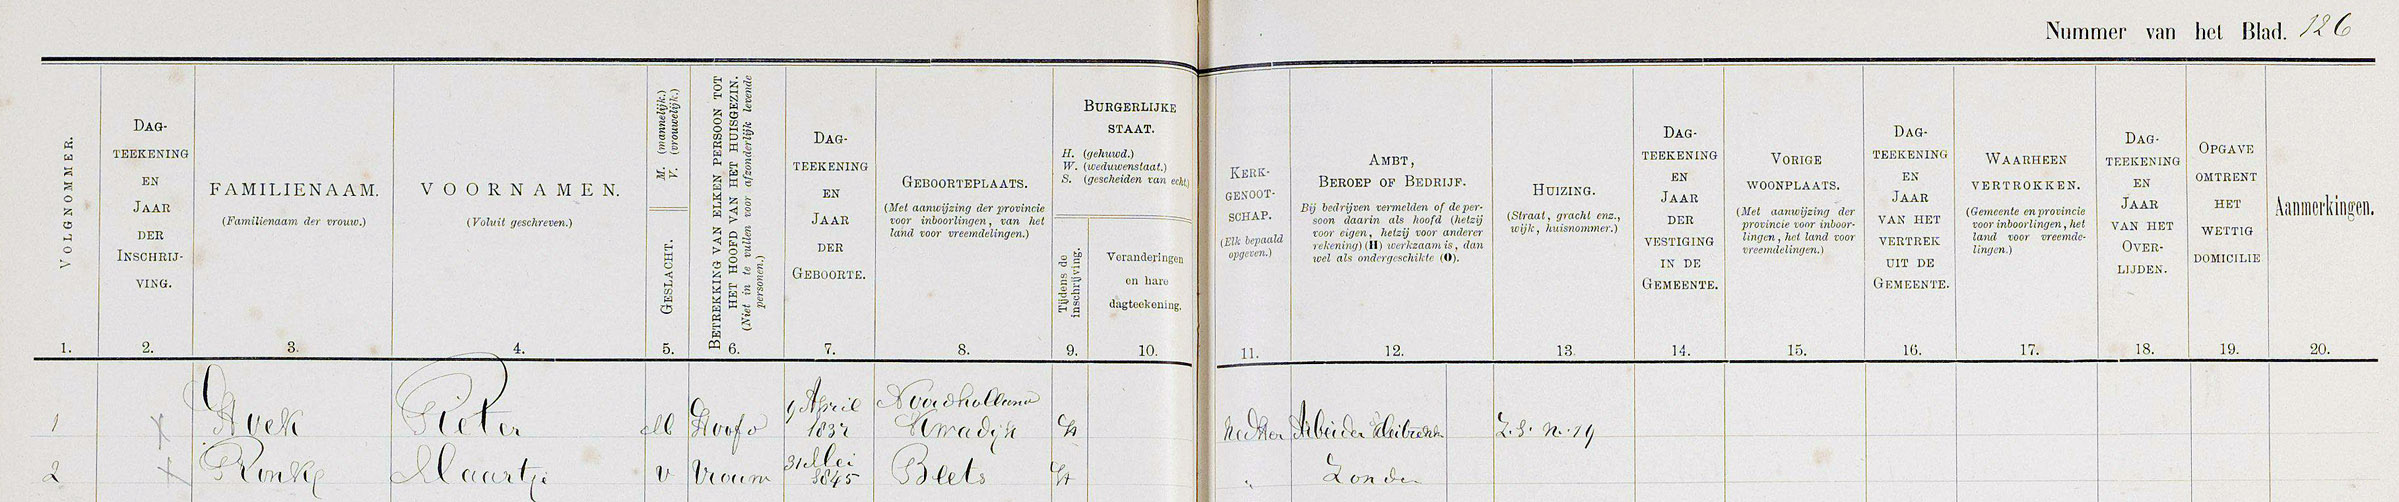 Nummer van het Blad. 126
VOLGNOMMER.
DAG-
TEEKENING
EN
JAAR
DER
INSCHRIJ-
VING.
FAMILIENAAM.
(Familienaam der vrouw.)
VOORNAMEN.
(Voluit geschreven.)
M. (mannelijk.)
V. (vrouwelijk.)
GESLACHT.
BETREKKING VAN ELKEN PERSOON TOT
HET HOOFD VAN HET HUISGEZIN.
(Niet in te vullen voor afzonderlijk levende
personen.)
DAG-
TEEKENING
EN
JAAR
DER
GEBOORTE.
GEBOORTEPLAATS.
(Met aanwijzing der provincie
voor inboorlingen, van het
land voor vreemdelingen.)
BURGERLIJKE
STAAT.
H. (gehuwd.)
W. (weduwenstaat.)
S. (gescheiden van echt.)
Tijdens de
inschrijving.
Veranderingen
en hare
dagteekening.
KERK-
GENOOT-
SCHAP.
(Elk bepaald
opgeven.)
AMBT,
BEROEP OF BEDRIJF.
Bij bedrijven vermelden of de per-
soon daarin als hoofd (hetzij
voor eigen, hetzij voor anderer
rekening) (H) werkzaam is, dan
wel als ondergeschikte (O).
HUIZING.
(Straat, gracht enz.,
wijk, huisnommer.)
DAG-
TEEKENING
EN
JAAR
DER
VESTIGING
IN DE
GEMEENTE.
VORIGE
WOONPLAATS.
(Met aanwijzing der
provincie voor inboor-
lingen, het land voor
vreemdelingen.)
DAG-
TEEKENING
EN
JAAR
VAN HET
VERTREK
UIT DE
GEMEENTE.
WAARHEEN
VERTROKKEN.
(Gemeente en provincie
voor inboorlingen, het
land voor vreemde-
lingen.)
DAG-
TEEKENING
EN
JAAR
VAN HET
OVER-
LIJDEN.
OPGAVE
OMTRENT
HET
WETTIG
DOMICILIE
Aanmerkingen.
1. 2. 3. 4. 5. 6. 7. 8. 9. 10. 11. 12. 13. 14. 15. 16. 17. 18. 19. 20.
9 April Noordholland
1 Hoek Pieter M Hoofd 1837 Kwadijk H Ned Her Arbeider Z.S. No. 19
31 Mei
2 Ronke Maartje V Vrouw 1845 Beets H " Zonder